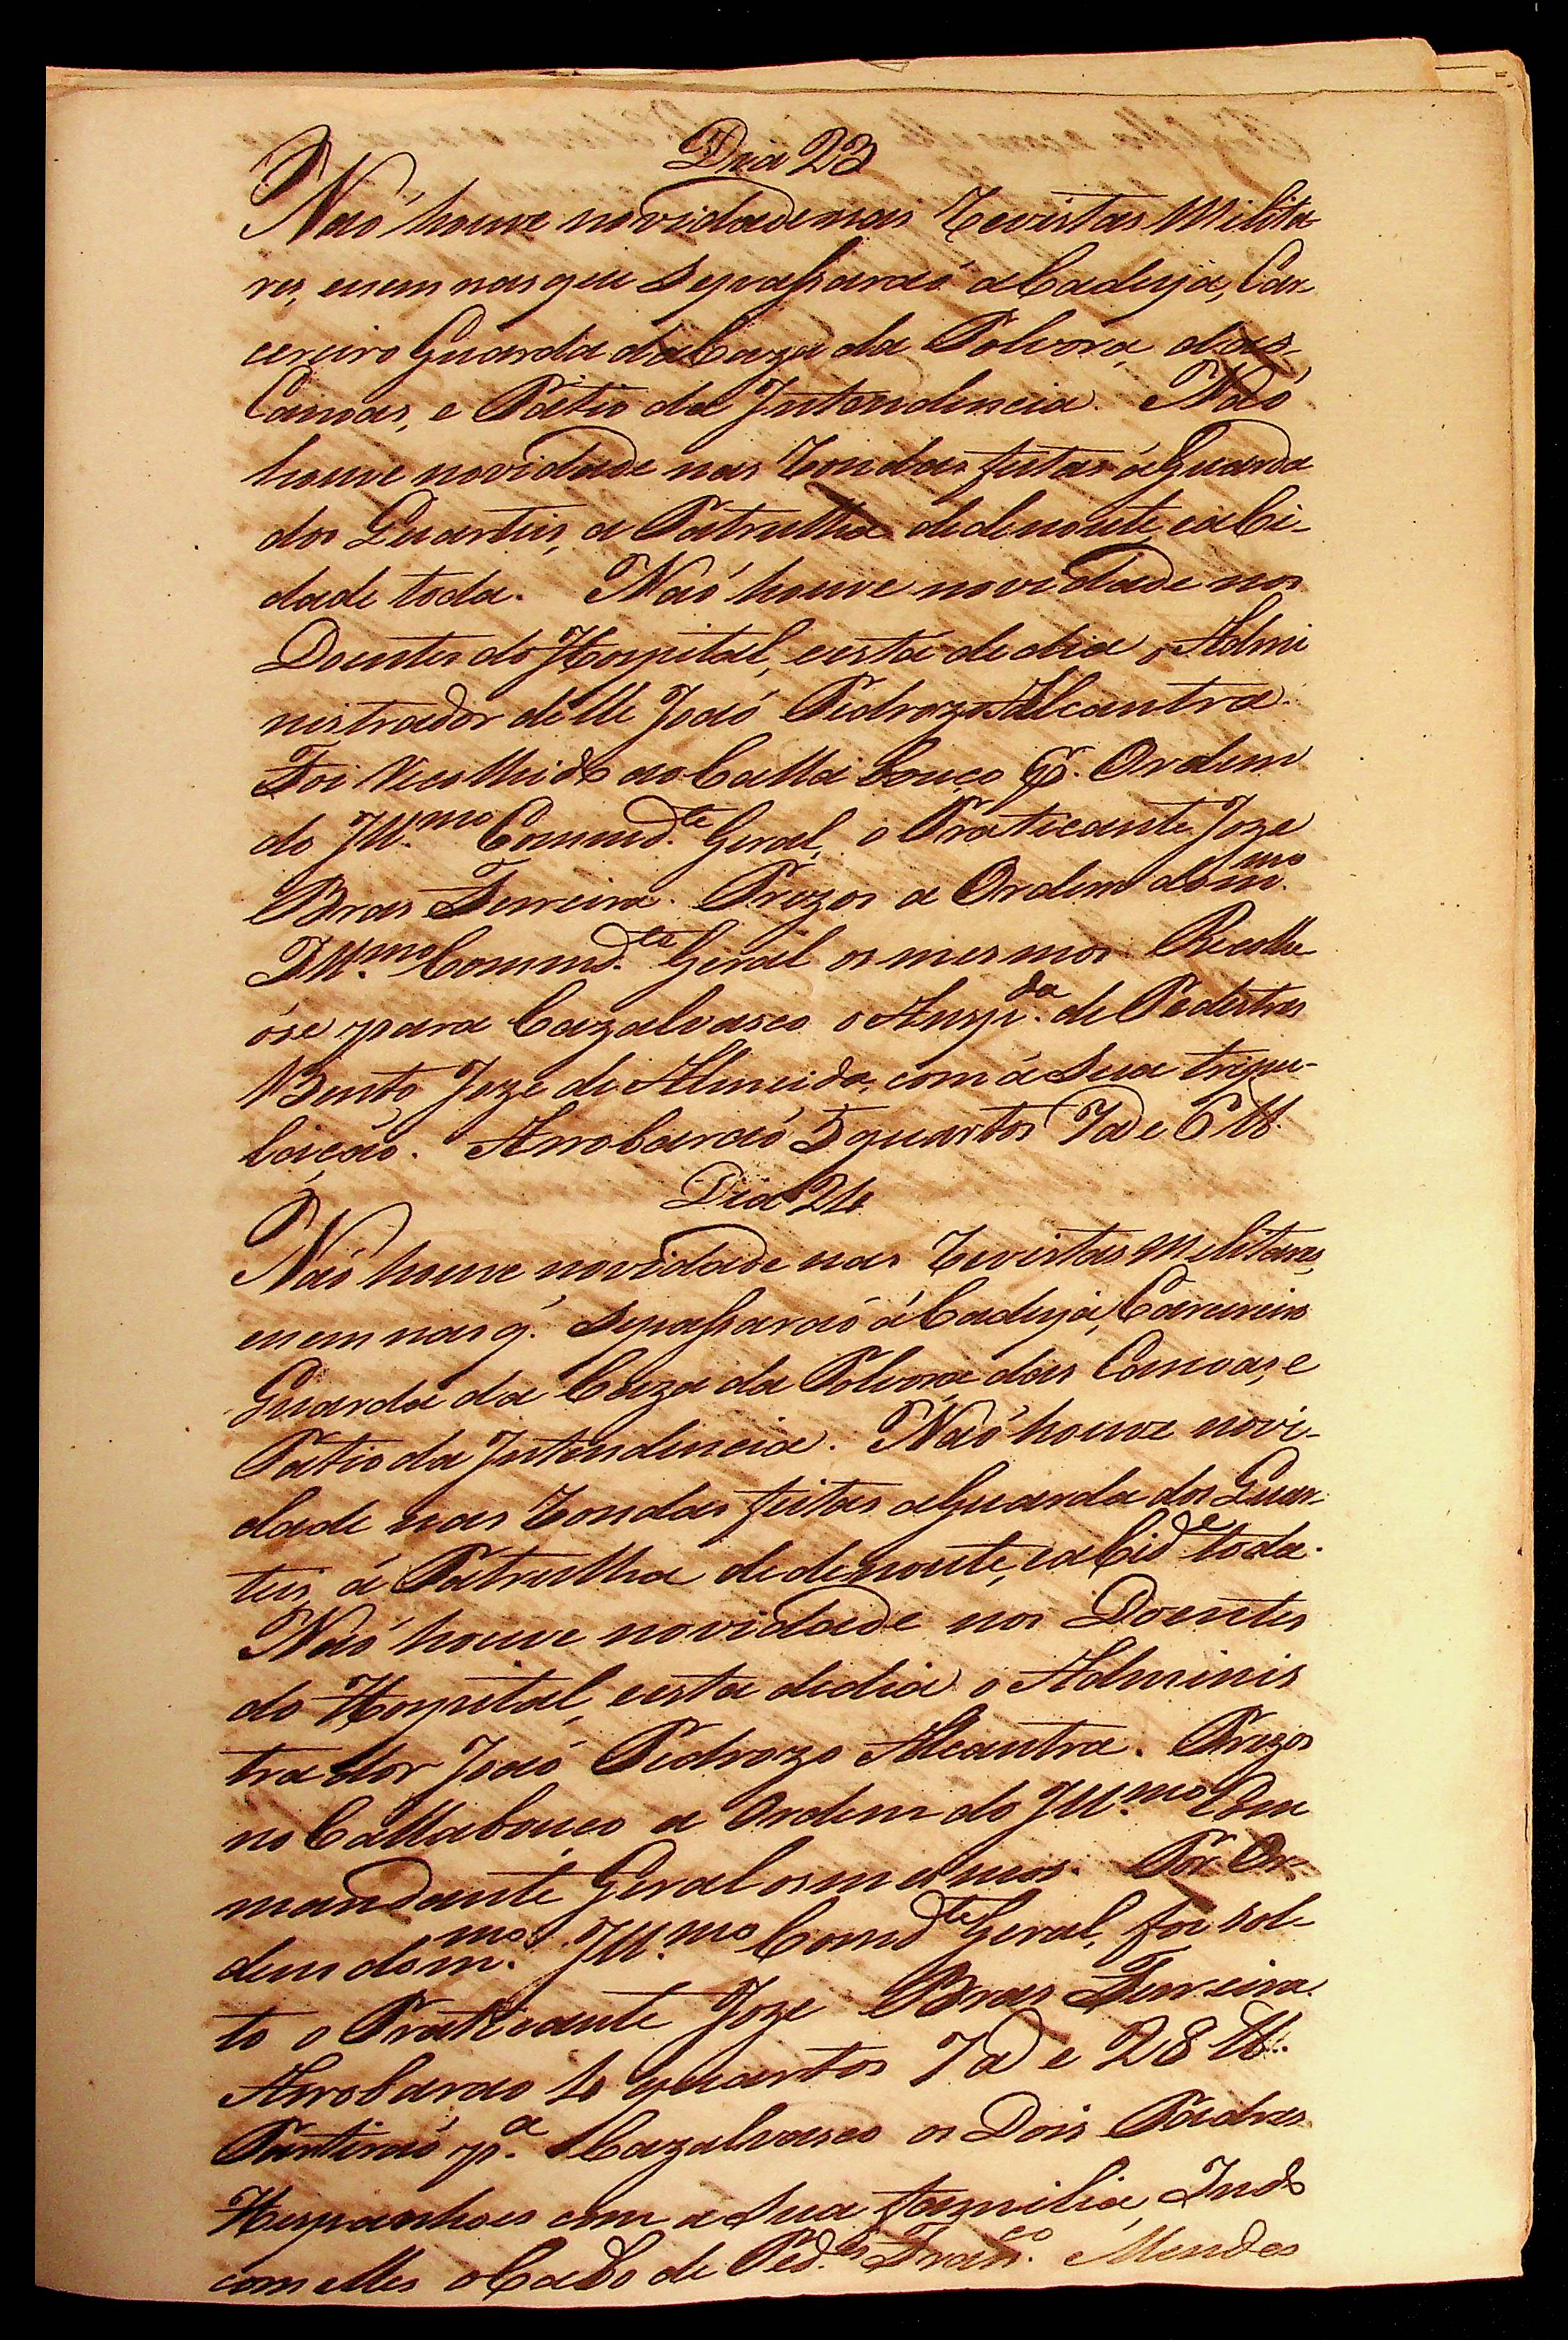 Dia 23
Naó houve novidade nas Revistas Milita
res, enem nas que sepassaraó a Cadeya, Car-
cereiro Guarda da Caza da Polvora, das
Canoas, e Pátio da Intendencia. Naó
houve novidade nas Rondas feitas a Guarda
dos Quarteis, a Patrulha dedenoute, eaCi-
dade toda. Naó houve novidade nos
Doentes do Hospital, eesta de dia o Admi
nistrador delle Joaó Pedrozo Alcantra.
Foi Recolhido ao Callabouço por Ordem
do Ill.mo Commd.te Geral, o Praticante Joze
Bras Ferreira. Prezos a Ordem dom.mo
Ill.mo Commd.te Geral os mesmos. Recolhe
óse para Cazalvasco o Ansp.da de Pedestres
Bento Joze de Almeida, com á Sua tripu-
laçáo. Arrobaraó 5 quartos 7@ e 6 lb.
Dia 24
Naó houve novidade nas Revistas Militares,
enem nas q. sepassaraó á Cadeya, Carcereiro
Guarda da Caza da Polvora das Canoas, e
Pátio da Intendencia. Naó houve novi-
dade nas Rondas feitas aGuarda dos Quar-
teis, á Patrulha dedenoute, eaCid.e toda.
Naó houve novidade nos Doentes
do Hospital, eesta dedia o Adminis
trador Joaó Pedrozo Alcantra. Prezos
no Callabouco a Ordem do Ill.mo Com
mandante Geral os mesmos. Por Or-
dem dom.mo Ill.mo Comd.te Geral, foi sol-
to o Praticante Joze Bras Ferreira.
Arrobarao 4 quartos 7@ e 28 lb.
Partiraó p.a Cazalvasco os Dois Padres
Hespanhoes com a Sua familia, Indo
com elles o Cabo de Ped.es Fran.co Mendes